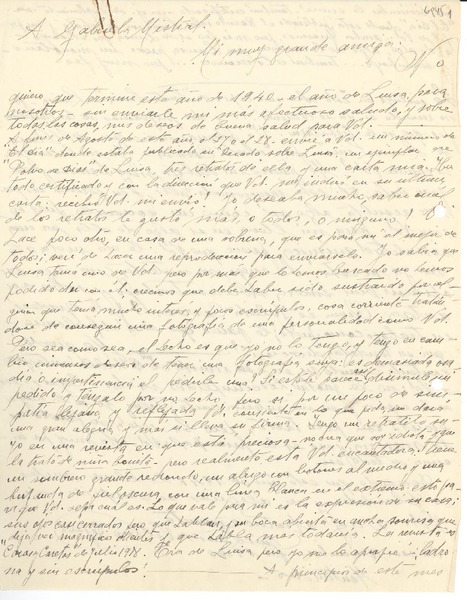 A Gabriela Mistral.
Mi muy grande amiga: No
quiero que termine este año de 1940 - el año de Luisa, para
nosotros - sin enviarle mi más afectuoso saludo, y sobre
todas las cosas, mis deseos de buena salud para Vd.
de Agosto de este año envié a Vd. un número de
"El Día" donde estaba publicado su Recado sobre Luisa, un ejemplar de
"Polvo de Días" de Luisa, tres retratos de ella y una carta mía.
todo certificado y con la dirección que Vd. me indicó en su última
carta: recibió Vd. mi envío? Yo deseaba mucho saber cual
de los retratos le gustó más o todos, o ninguno!
Hace poco vi, en casa de una sobrina, que es para mí el mejor de
todos; veré de hacer una reproducción para enviárselo. Yo sabía que
Luisa tenía uno de Vd. pero por mas que lo hemos buscado no hemos
podido dar con él; creemos que debe haber sido sustraído por al-
guien que tenía mucho interés y pocos escrúpulos, cosa corriente tratán-
dose de conseguir una fotografía de una personalidad como Vd.
Pero sea como sea, el hecho es que yo no lo tengo, y tengo en cam-
bio inmensos deseos de tener una fotografía suya: es demasiada osa-
día o impertinencia el pedirle una? Si este le parece mi
pedido téngalo por no hecho pero si por un poco de sim-
patía lejana y reflejada Vd. consiente en lo que pido me dará
una gran alegría y mas si lleva su firma. Tengo un retrato su-
yo en una revista en que está preciosa
pero realmente está Vd. encantadora. Tiene
un sombrero grande redondo, un abrigo con botones al medio y una
con una línea blanca en el extremo
que Vd. Lo que vale para mí es la expresión de su cara:
sus ojos casi cerrados pero que hablan, y su boca abierta en ancha sonrisa que
deja ver magníficos dientes que habla mas todavía. La revista es
"Caras y Caretas" de julio 1938. Era de Luisa pero yo me la apropié: ladro-
na y sin escrúpulos!
A principios de este mes